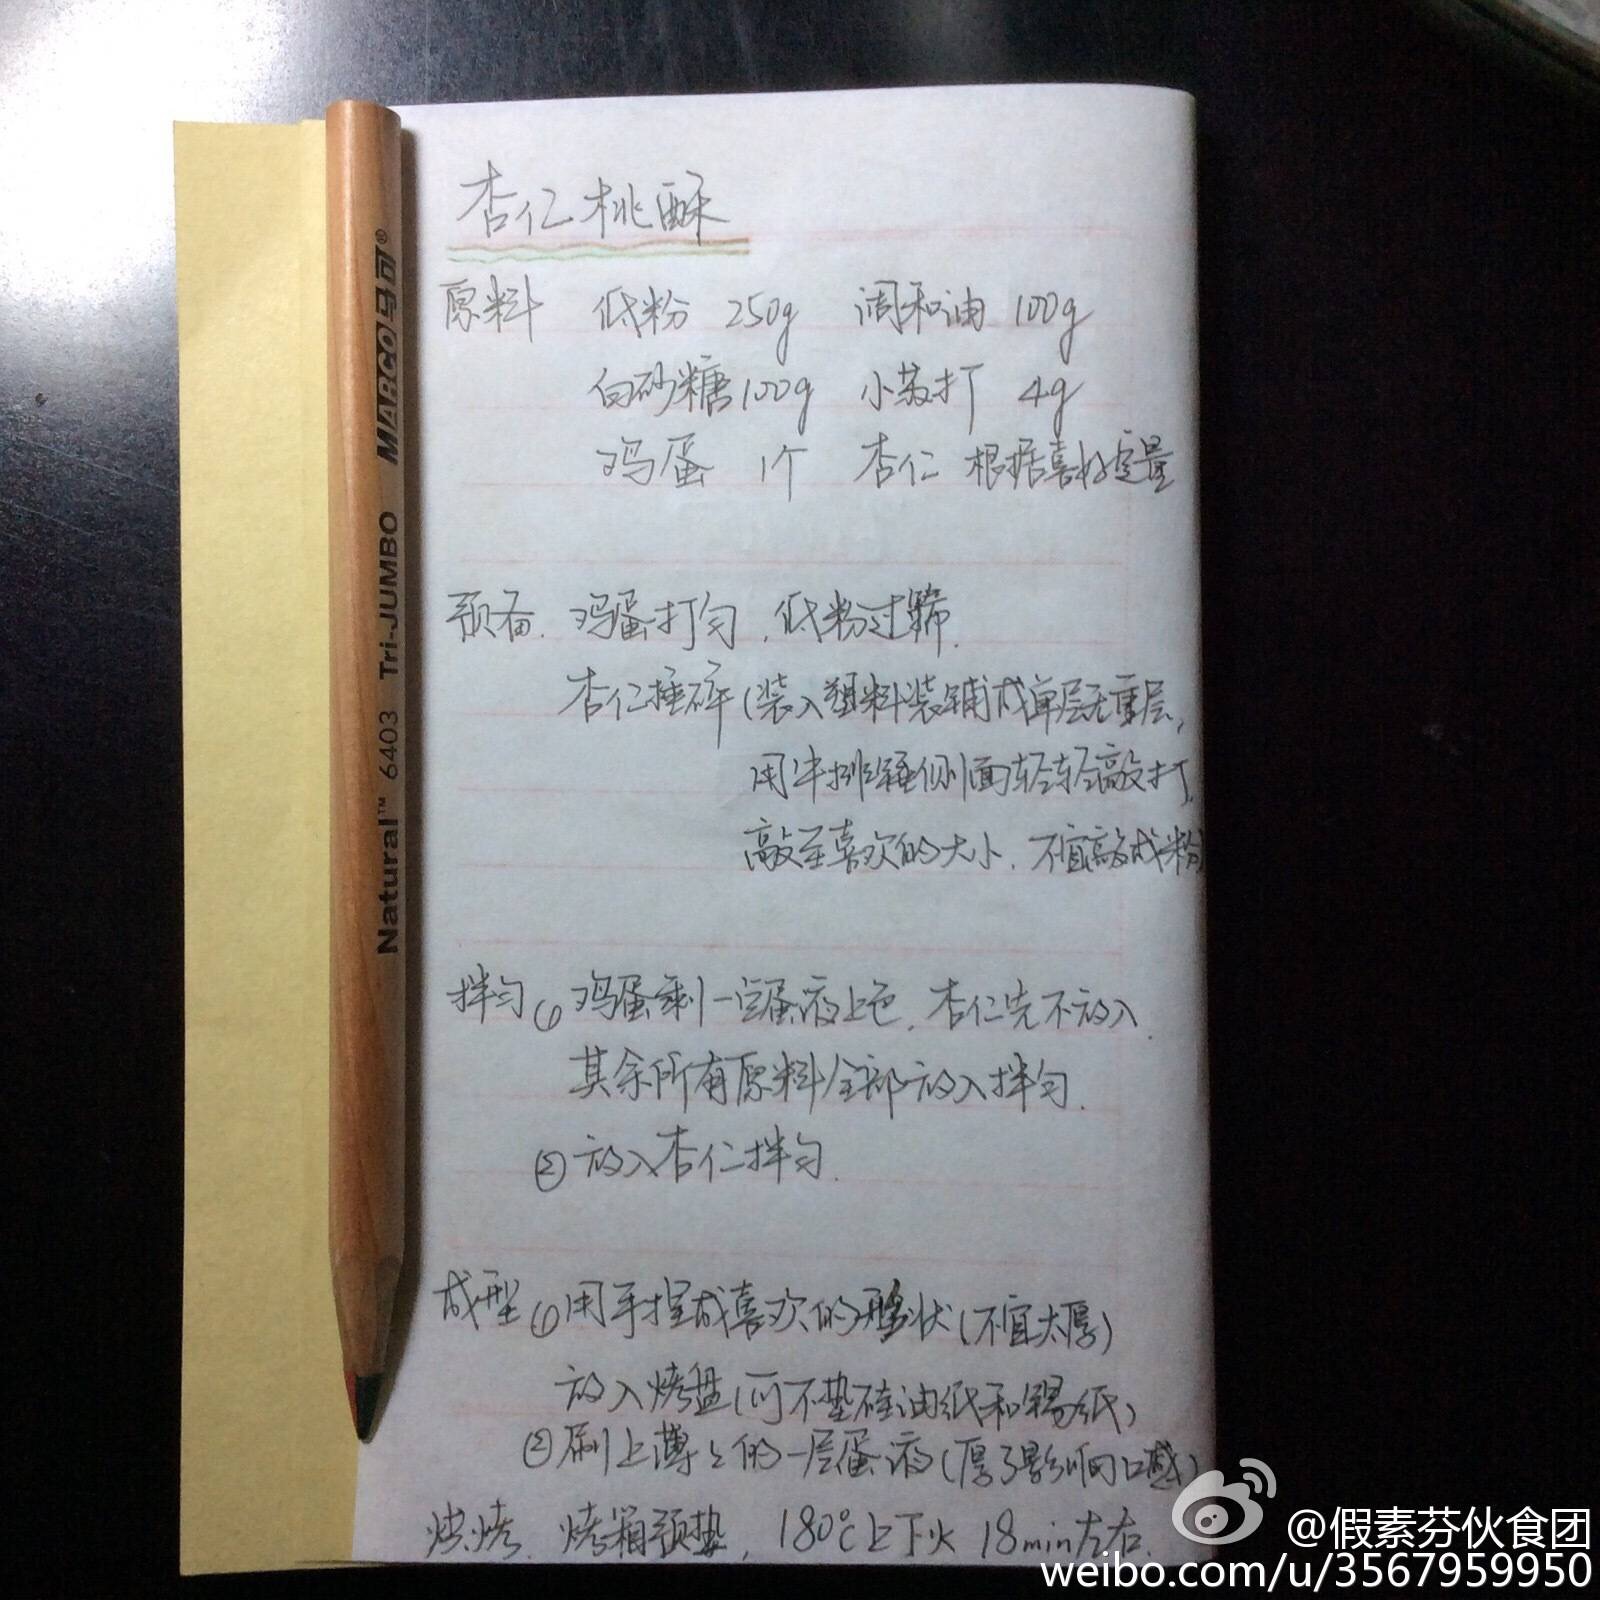 杏仁桃酥
原料 低粉 250g 调和油 100g
白砂糖 100g 小苏打 4g
鸡蛋 1个 杏仁 根据喜好定量
预备. 鸡蛋打匀,低粉过筛.
杏仁捶碎(装入塑料装铺成单层无重层,
用牛排锤侧面轻轻敲打,
敲至喜欢的大小.不宜敲成粉)
拌匀 ① 鸡蛋剩一点蛋液上色.杏仁先不放入.
其余所有原料全部放入拌匀.
② 放入杏仁拌匀.
成型 ① 用手捏成喜欢的形状(不宜太厚)
放入烤盘(可不垫硅油纸和锡纸)
② 刷上薄々的一层蛋液(厚了影响口感)
烘烤. 烤箱预热, 180℃上下火 18min左右.
MARCO马可® Tri-JUMBO 6403 Natural™
@假素芬伙食团
weibo.com/u/3567959950